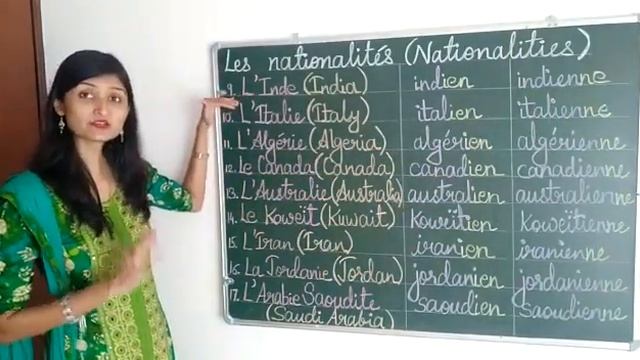 Les nationalités (Nationalities)
9. L'Inde (India) indien indienne
10. L'Italie (Italy) italien italienne
11. L'Algérie (Algeria) algérien algérienne
12. Le Canada (Canada) canadien canadienne
13. L'Australie (Australia) australien australienne
14. Le Koweït (Kuwait) koweïtien koweïtienne
15. L'Iran (Iran) iranien iranienne
16. La Jordanie (Jordan) jordanien jordanienne
17. L'Arabie Saoudite saoudien saoudienne
(Saudi Arabia)